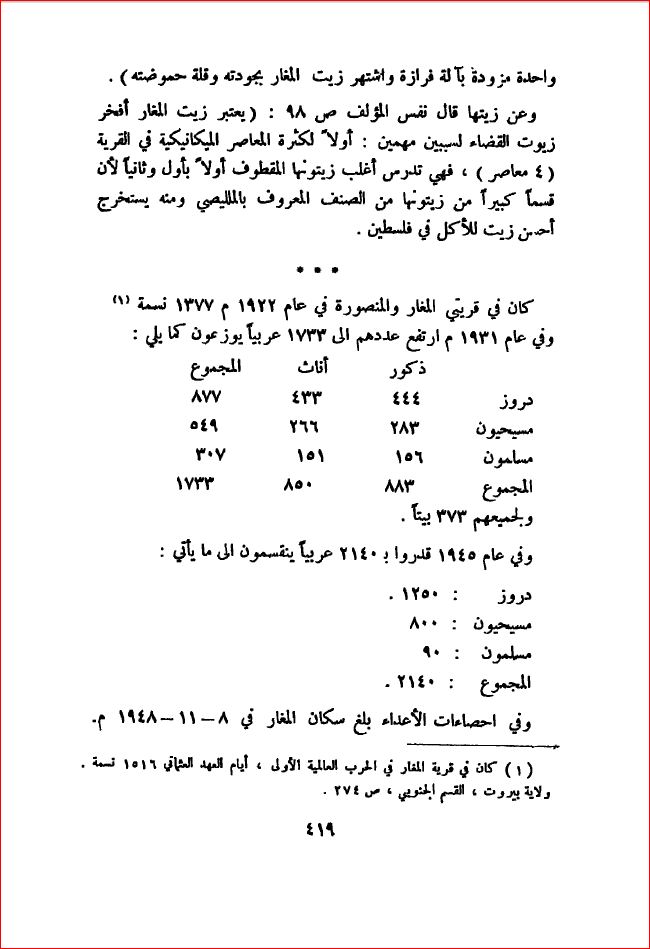 واحدة مزودة بآلة فرازة واشتهر زيت المغار بجودته وقلة حموضته) .
وعن زيتها قال نفس المؤلف ص ٩٨ : (يعتبر زيت المغار أفخر
زيوت القضاء لسببين مهمين : أولاً لكثرة المعاصر الميكانيكية في القرية
(٤ معاصر) ، فهي تدرس أغلب زيتونها المقطوف أولاً بأول وثانياً لأن
قسماً كبيراً من زيتونها من الصنف المعروف بالمليصي ومنه يستخرج
أحسن زيت للأكل في فلسطين .
* * *
كان في قريتي المغار والمنصورة في عام ١٩٢٢ م ١٣٧٧ نسمة (١)
وفي عام ١٩٣١ م ارتفع عددهم الى ١٧٣٣ عربياً يوزعون كما يلي :
ذكور أناث المجموع
دروز ٤٤٤ ٤٣٣ ٨٧٧
مسيحيون ٢٨٣ ٢٦٦ ٥٤٩
مسلمون ١٥٦ ١٥١ ٣٠٧
المجموع ٨٨٣ ٨٥٠ ١٧٣٣
ولجميعهم ٣٧٣ بيتاً .
وفي عام ١٩٤٥ قدروا بـ ٢١٤٠ عربياً ينقسمون الى ما يأتي :
دروز : ١٢٥٠ .
مسيحيون : ٨٠٠
مسلمون : ٩٠
المجموع : ٢١٤٠ .
وفي احصاءات الأعداء بلغ سكان المغار في ٨ – ١١ – ١٩٤٨ م.
(١) كان في قرية المغار في الحرب العالمية الأولى ، أيام العهد العثماني ١٥١٦ نسمة .
ولاية بيروت ، القسم الجنوبي ، ص ٢٧٤ .
٤١٩